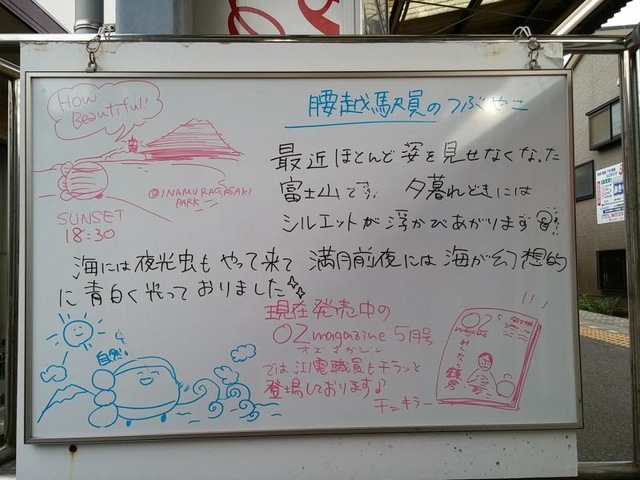 How
Beautiful!
腰越駅員のつぶやこ
最近ほとんど姿を見せなくなった
富士山です。夕暮れどきには
シルエットが浮かびあがります
@INAMURAGASAKI
PARK
SUNSET
18:30
海には夜光虫もやって来て 満月前夜には海が幻想的
に青白く光っておりました
現在発売中の
OZ magazine 5月号
オズマガジン
では江電職員もチラッと
登場しております♪
自然い
OZ
magazine
鎌倉